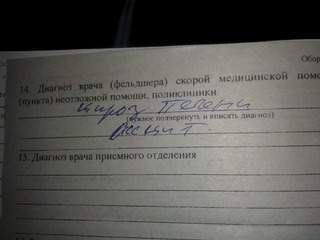 Обор
14. Диагноз врача (фельдшера) скорой медицинской помо
(пункта) неотложной помощи, поликлиники
цироз Печени
(нужное подчеркнуть и вписать диагноз)
Асцит
15. Диагноз врача приемного отделения